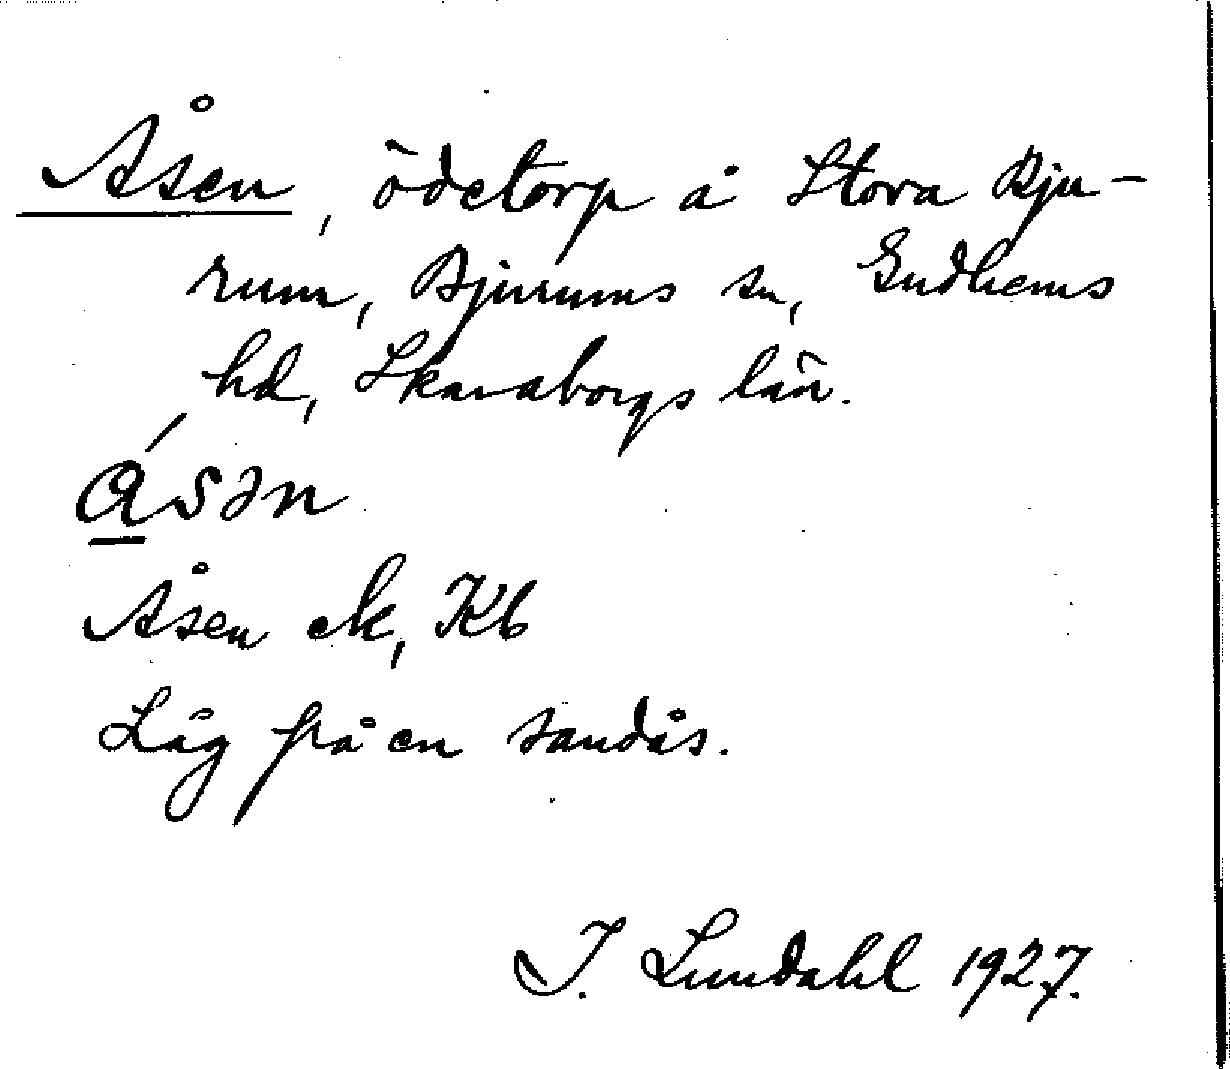 Åsen, ödetorp å Stora Bju-
rum, Bjurums sn, Gudhems
hd, Skaraborgs län.
ɑ́sən
Åsen ek, Kb
Låg på en sandås.
I. Lundahl 1927.